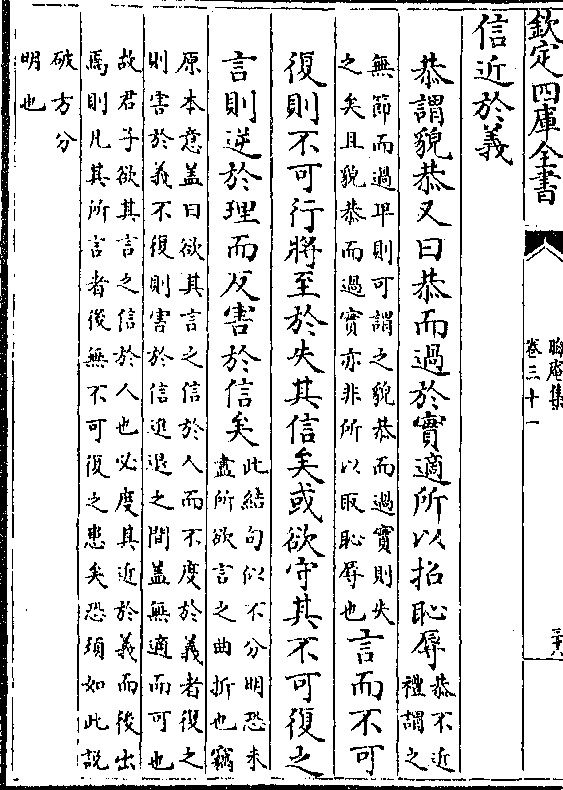 欽定四庫全書
晦庵集
卷三十一
三十八
信近於義
恭謂貌恭又曰恭而過於實適所以招恥辱恭不近禮謂之
無節而過卑則可謂之貌恭而過實則失
之矣且貌恭而過實亦非所以取恥辱也言而不可
復則不可行將至於失其信矣或欲守其不可復之
言則逆於理而反害於信矣此結句似不分明恐未
盡所欲言之曲折也竊
原本意盖曰欲其言之信於人而不度於義者復之
則害於義不復則害於信進退之間盖無適而可也
故君子欲其言之信於人也必度其近於義而後出
焉則凡其所言者後無不可復之患矣恐須如此說
破方分
明也